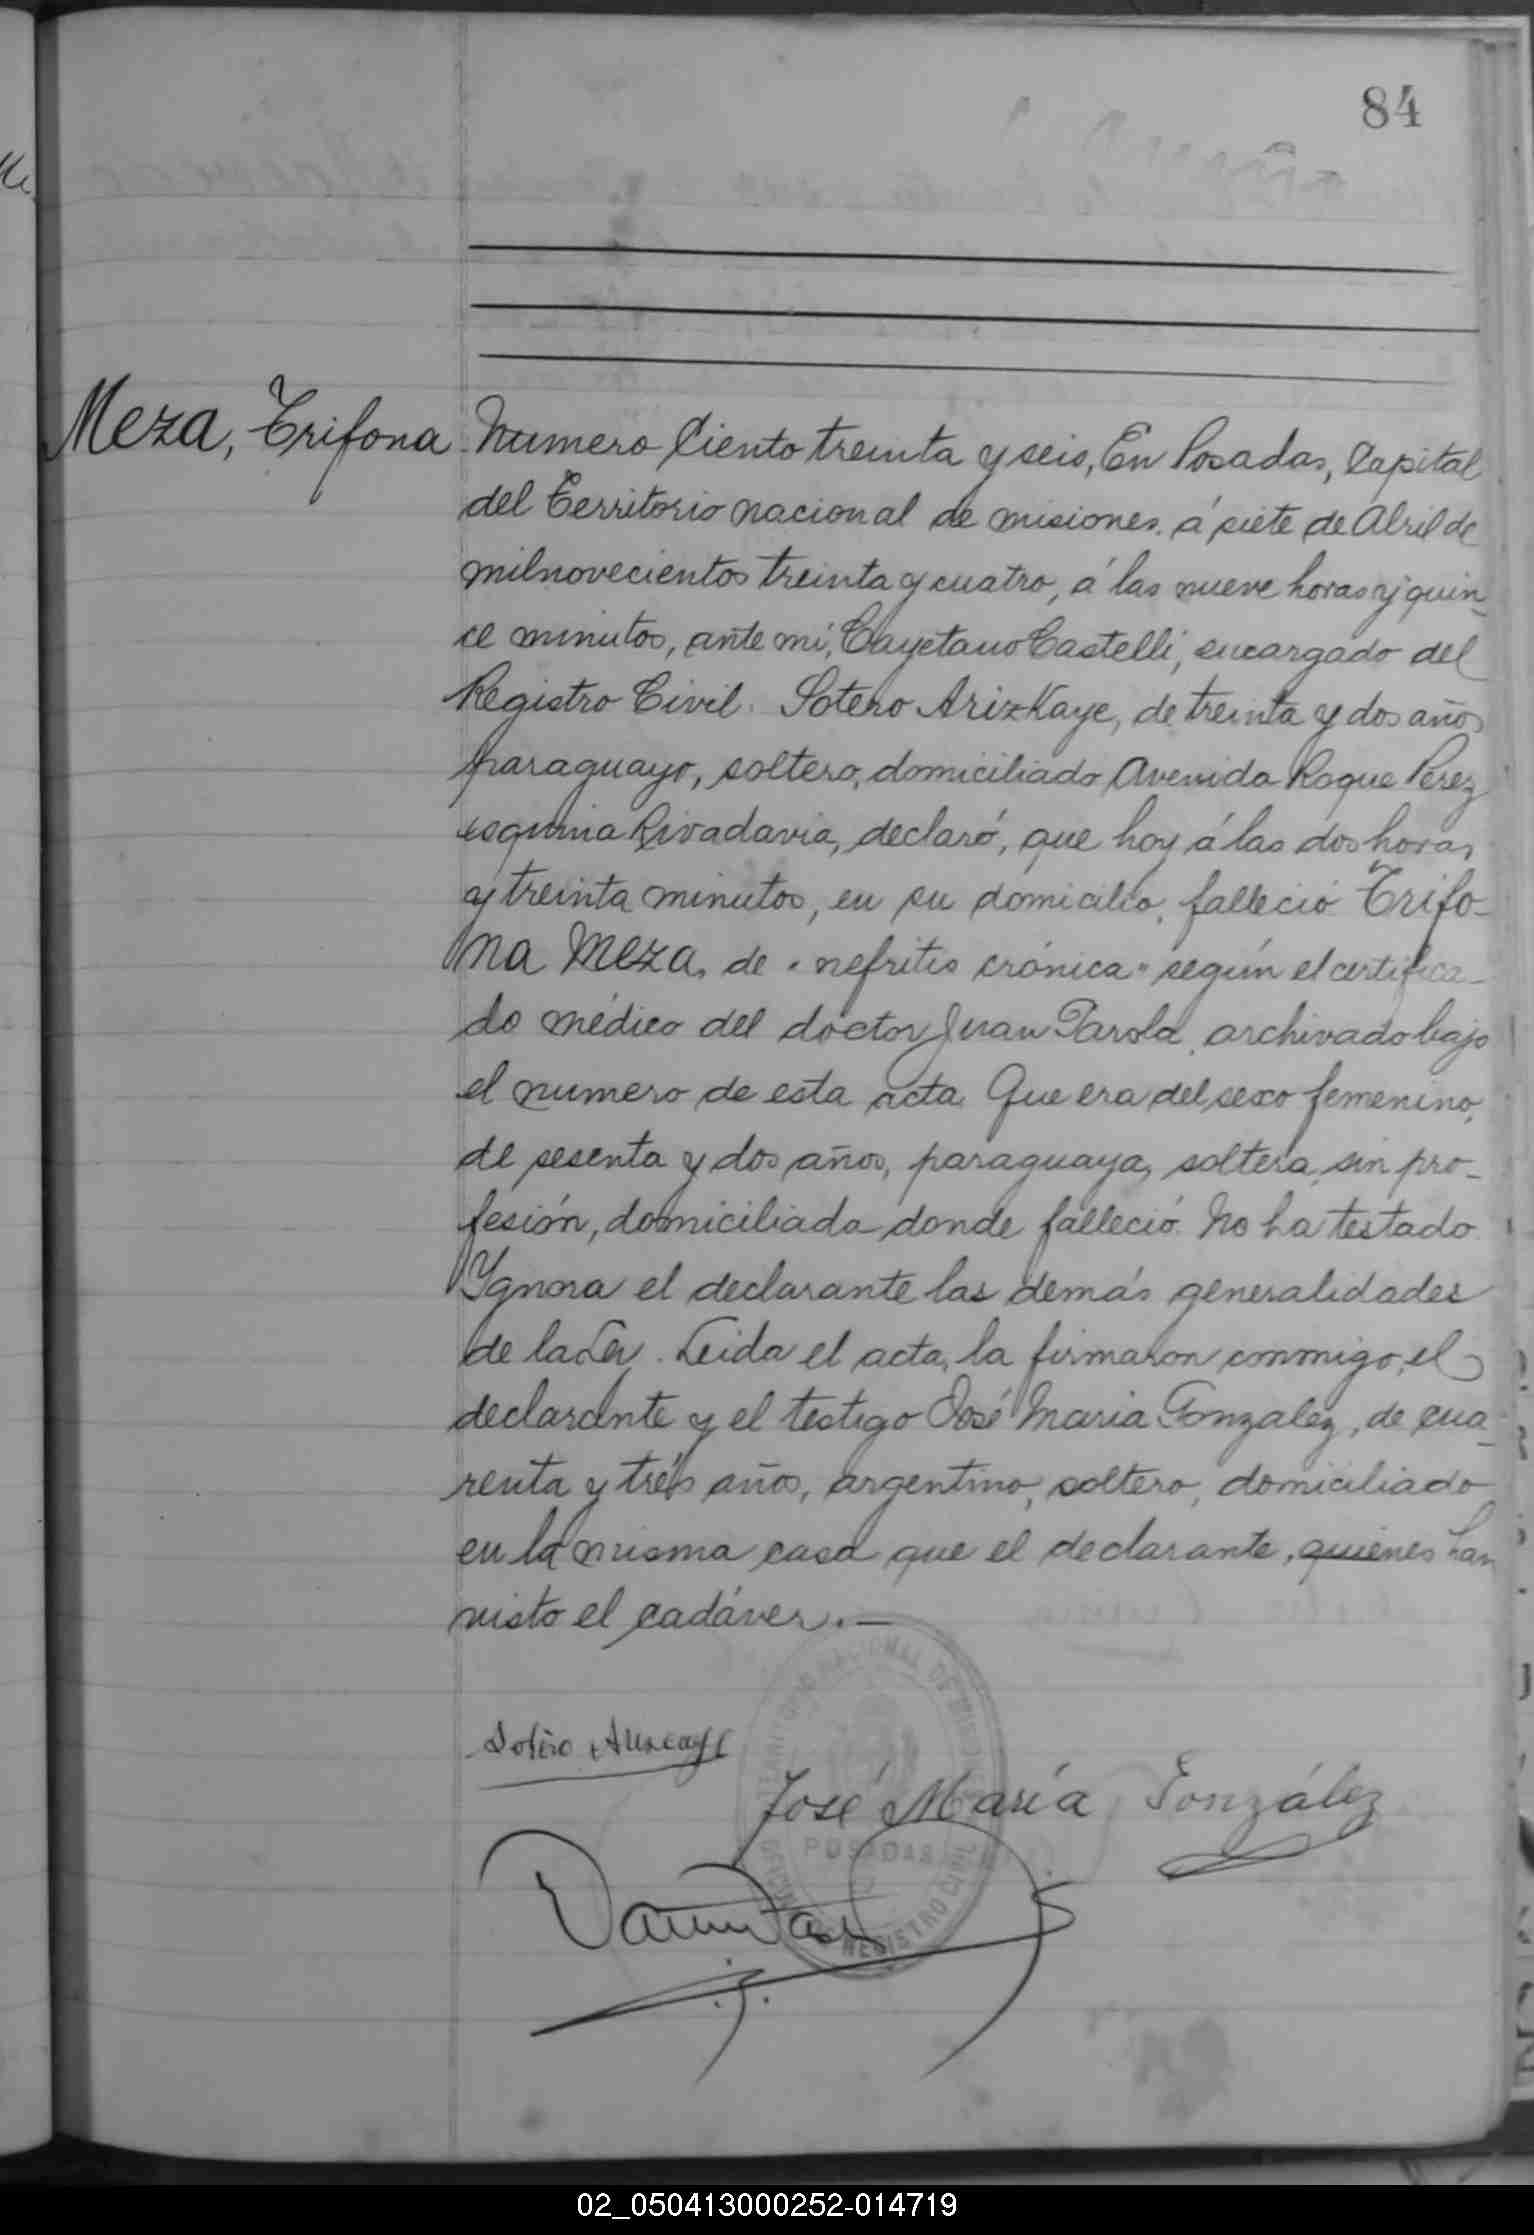 84
Meza, Trifona
Numero Ciento treinta y seis, En Posadas, Capital
del Territorio nacional de misiones. á siete de Abril de
milnovecientos treinta y cuatro, á las nueve horas y quin-
ce minutos, ante mí, Cayetano Castelli, encargado del
Registro Civil. Sotero Arizkaye, de treinta y dos años
paraguayo, soltero, domiciliado Avenida Roque Perez
esquina Rivadavia, declaró, que hoy á las dos horas,
y treinta minutos, en su domicilio, falleció Trifo-
na Meza, de "nefritis crónica" según el certifica-
do médico del doctor Juan Parola, archivado bajo
el numero de esta acta. Que era del sexo femenino,
de sesenta y dos años, paraguaya, soltera, sin pro-
fesión, domiciliada donde falleció. No ha testado.
Ygnora el declarante las demás generalidades
de la Ley. Leida el acta, la firmaron conmigo, el
declarante y el testigo José Maria Gonzalez, de cua-
renta y trés años, argentino, soltero, domiciliado
en la misma casa que el declarante, quienes han
visto el cadáver.—
Sotero
José María González
TERRITORIO NACIONAL DE MISIONES
POSADAS
REGISTRO CIVIL
02_050413000252-014719